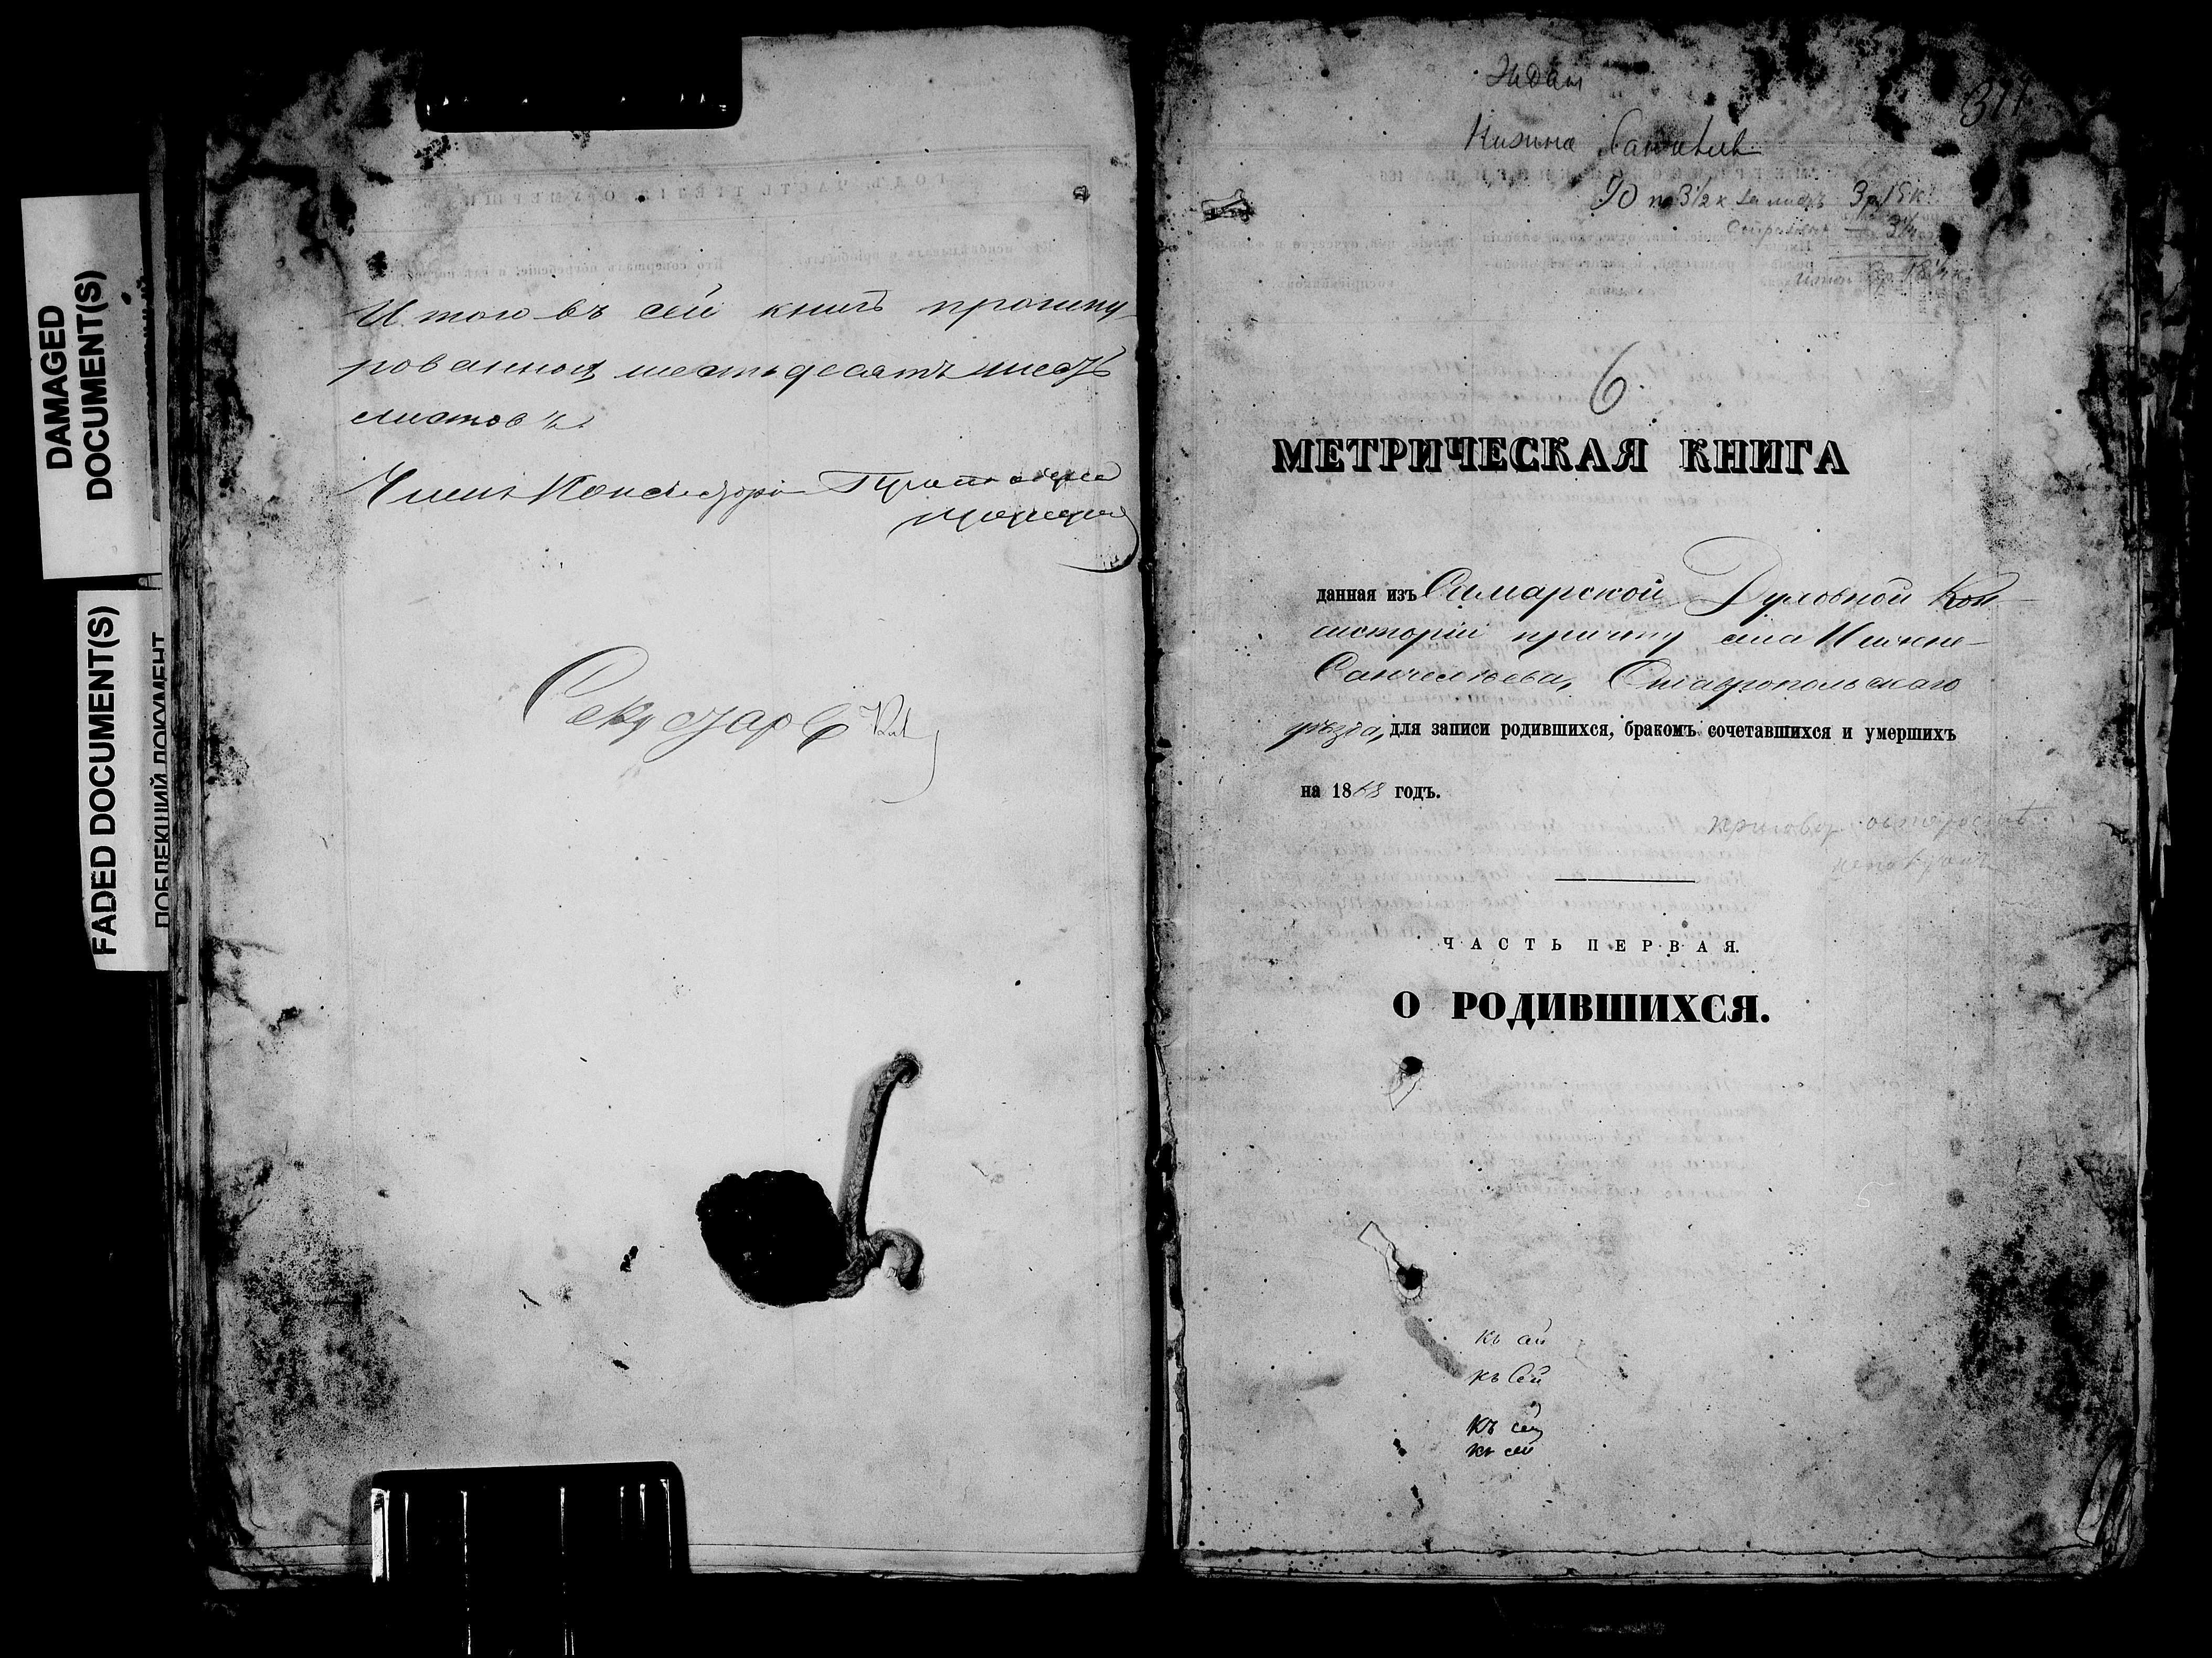 DAMAGED
DOCUMENT(S)
FADED DOCUMENT(S)
ПОБЛЕКШИЙ ДОКУМЕНТ
Итого въ сей книгѣ прошну-
рованныхъ шестьдесятъ шесть
листовъ.
Членъ Консисторіи
Секретарь
Нижне Санчелѣев
90 по 3 1/2 к за листъ 3 р 15 к.
3 1/4
Итого 3 р. 18 1/4 к.
311
6.
МЕТРИЧЕСКАЯ КНИГА
данная изъ Самарской Духовной Кон-
систоріи причту села Нижне-
Санчелѣева, Ставропольскаго
уѣзда, для записи родившихся, бракомъ сочетавшихся и умершихъ
на 1868 годъ.
ЧАСТЬ ПЕРВАЯ.
О РОДИВШИХСЯ.
къ сей
къ сей
къ сей
къ сей